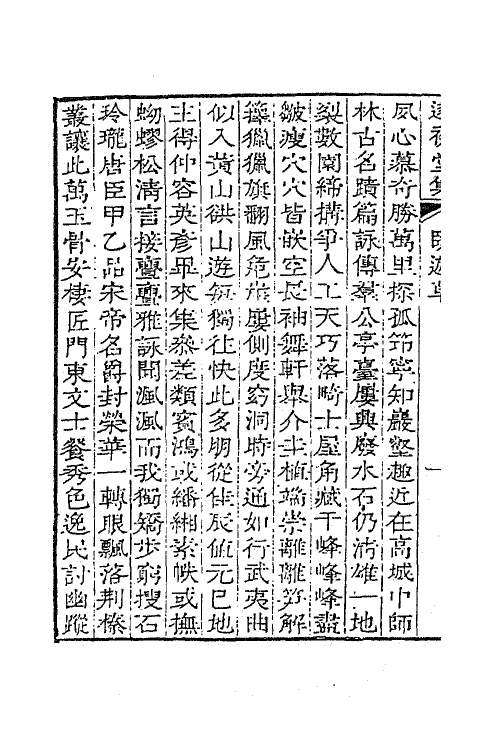 夙心慕奇勝萬里探孤筇寧知巖壑趣近在高城中師
林古名蹟篇詠傳羣公亭臺屢興廢水石仍清雄一地
裂數園締搆爭人工天巧落畸士屋角藏千峰峰峰盡
皴瘦穴穴皆嵌空長袖舞軒舉介圭植端崇離離笋解
籜獵獵旗翻風危磴屢側度窈洞時旁通如行武夷曲
似入黃山谼山遊每獨往快此多朋從佳辰值元巳地
主得仲容英彥畢來集參差類賓鴻或繙緗素帙或撫
蚴蟉松清言接亹亹雅詠聞渢渢而我獨矯步窮搜石
玲瓏唐臣甲乙品宋帝名爵封榮華一轉眼飄落荆榛
叢讓此萬玉骨安棲匠門東文士餐秀色逸民討幽蹤